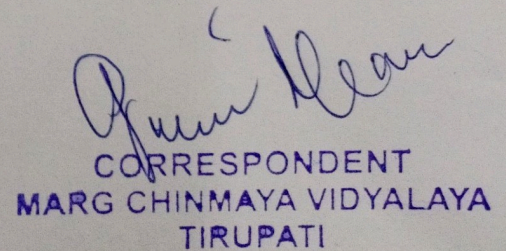 CORRESPONDENT
MARG CHINMAYA VIDYALAYA
TIRUPATI